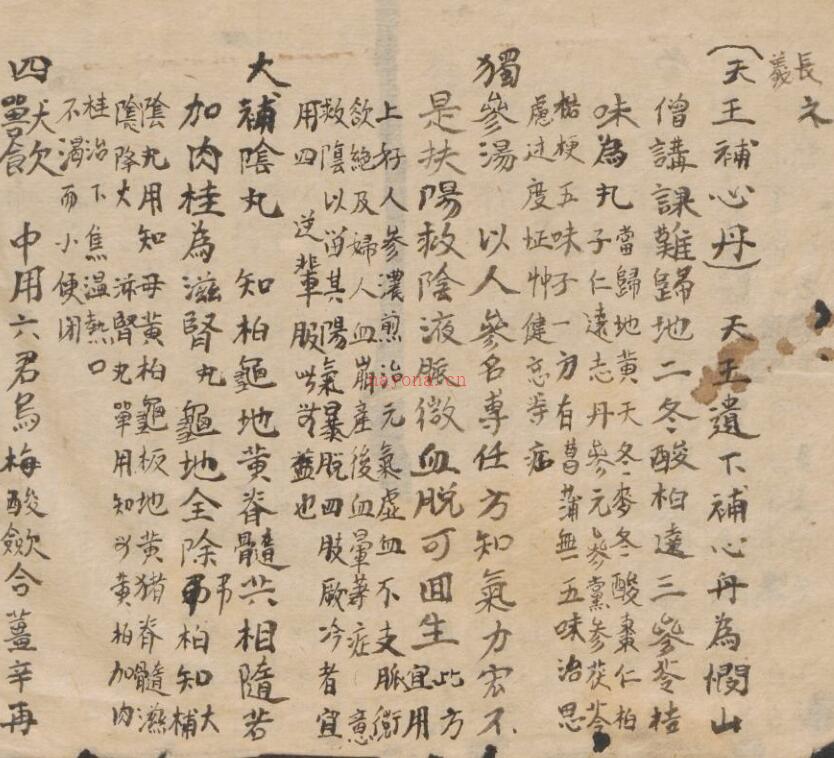 長義
ネ
(天王補心丹) 天王遺下補心丹為憫山
僧講課難歸地二冬酸柏遠三參苓桔
味為丸 當歸地黃天冬麥冬酸棗仁柏
子仁遠志丹參元參黨參茯苓
桔梗五味子一方有菖蒲無五味治思
慮过度怔忡健忘等症
獨參湯 以人參名專任方知氣力宏不
是扶陽救陰液脈微血脫可回生 此方宜用
上好人參濃煎治元氣虛血不支脈衛
欲絕及婦人血崩產後血暈等症意
救陰以留其陽氣暴脫四肢厥冷者宜
用四逆輩服此益也
大補陰丸 知柏龜地黃脊髓共相隨若
加肉桂為滋腎丸龜地全除用柏知 大補
陰丸用知母黃柏龜板地黃猪脊髓滋
陰降火 滋腎丸單用知黃柏加肉
桂治下焦溫熱口
不渴而小便閉
四獸飲 中用六君烏梅酸歛合薑辛再
nayona.cn